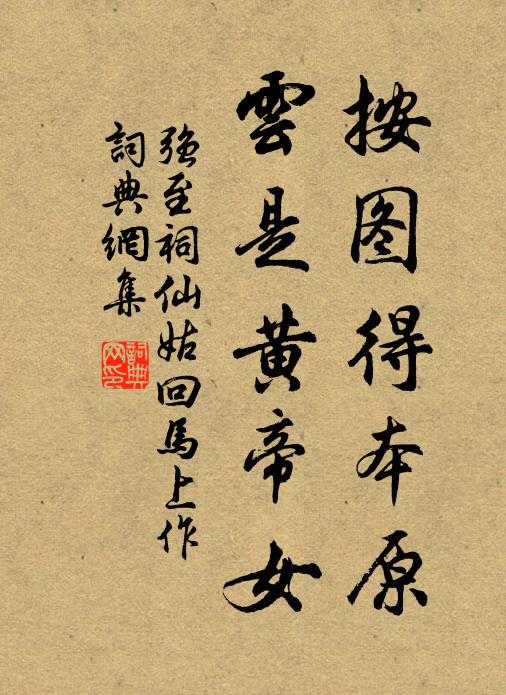 按图得本原
雲是黃帝女
强至祠仙姑回馬上作
詞典網集
詞典网印